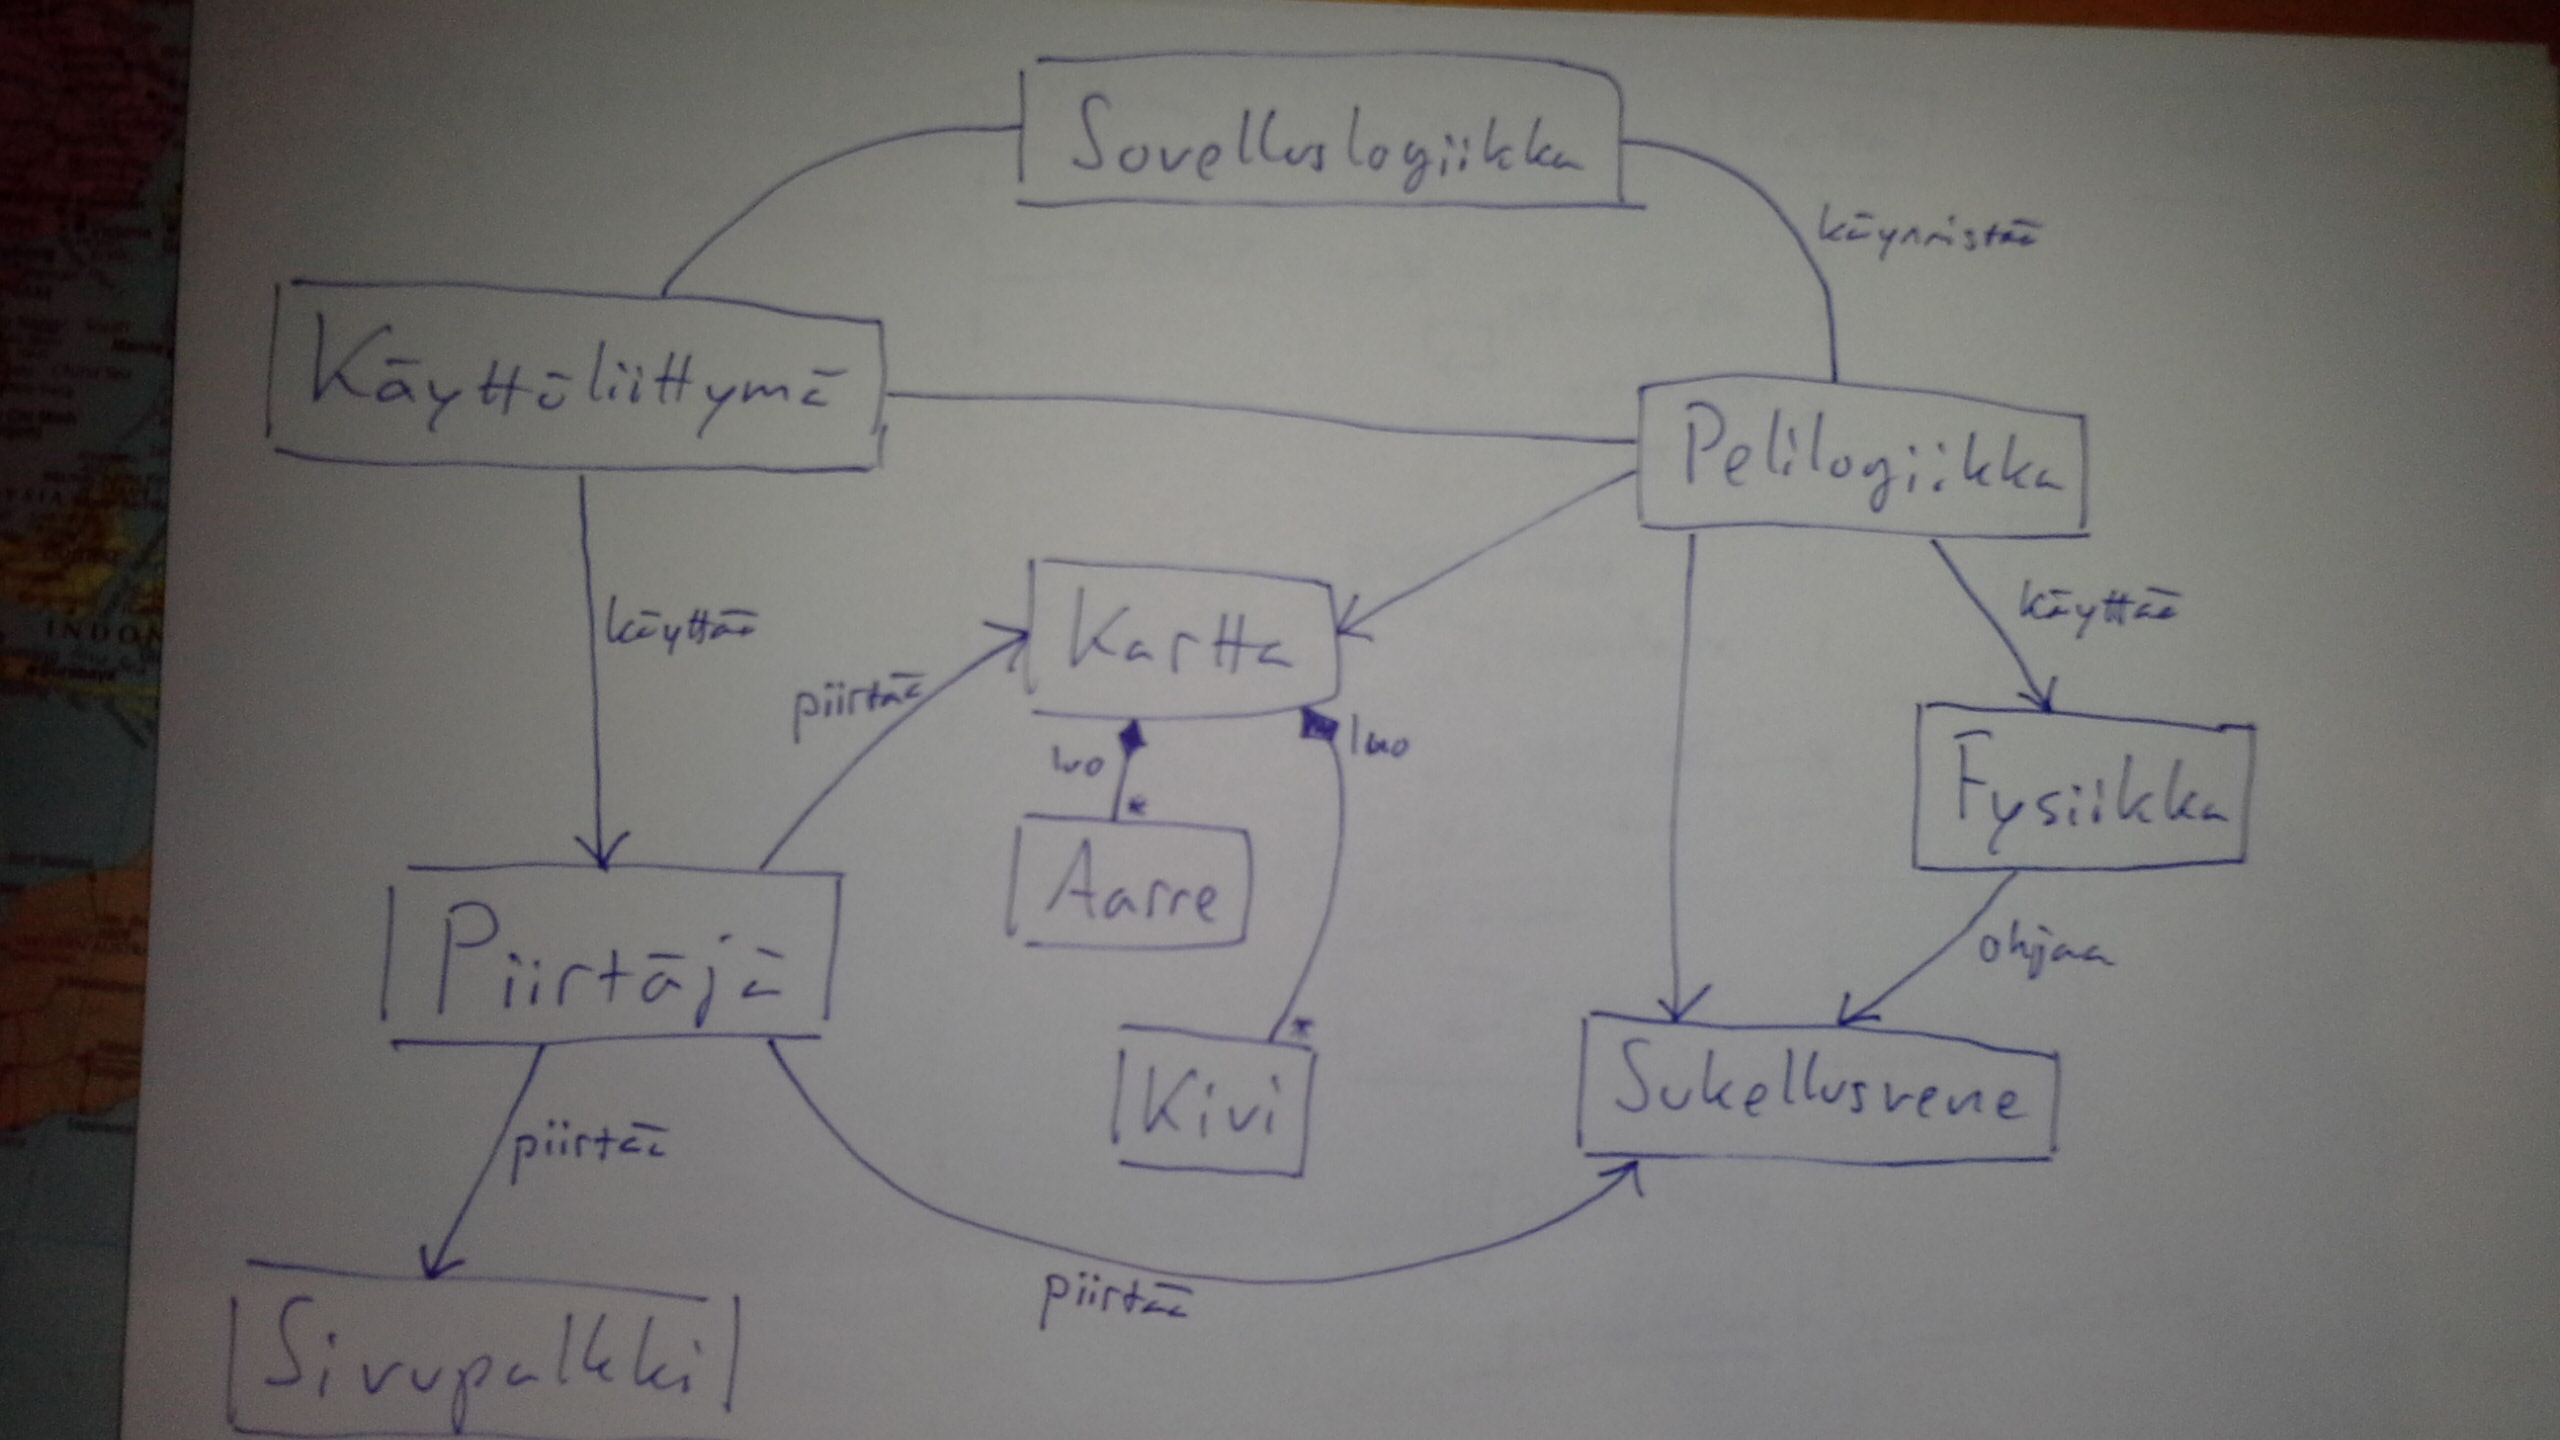 Sovelluslogiikka
käynnistää
Käyttöliittymä
Pelilogiikka
käyttää
käyttää
Kartta
piirtää
luo
luo
*
Fysiikka
Aarre
Piirtäjä
ohjaa
*
Kivi
Sukellusvene
piirtää
piirtää
Sivupalkki
INDON